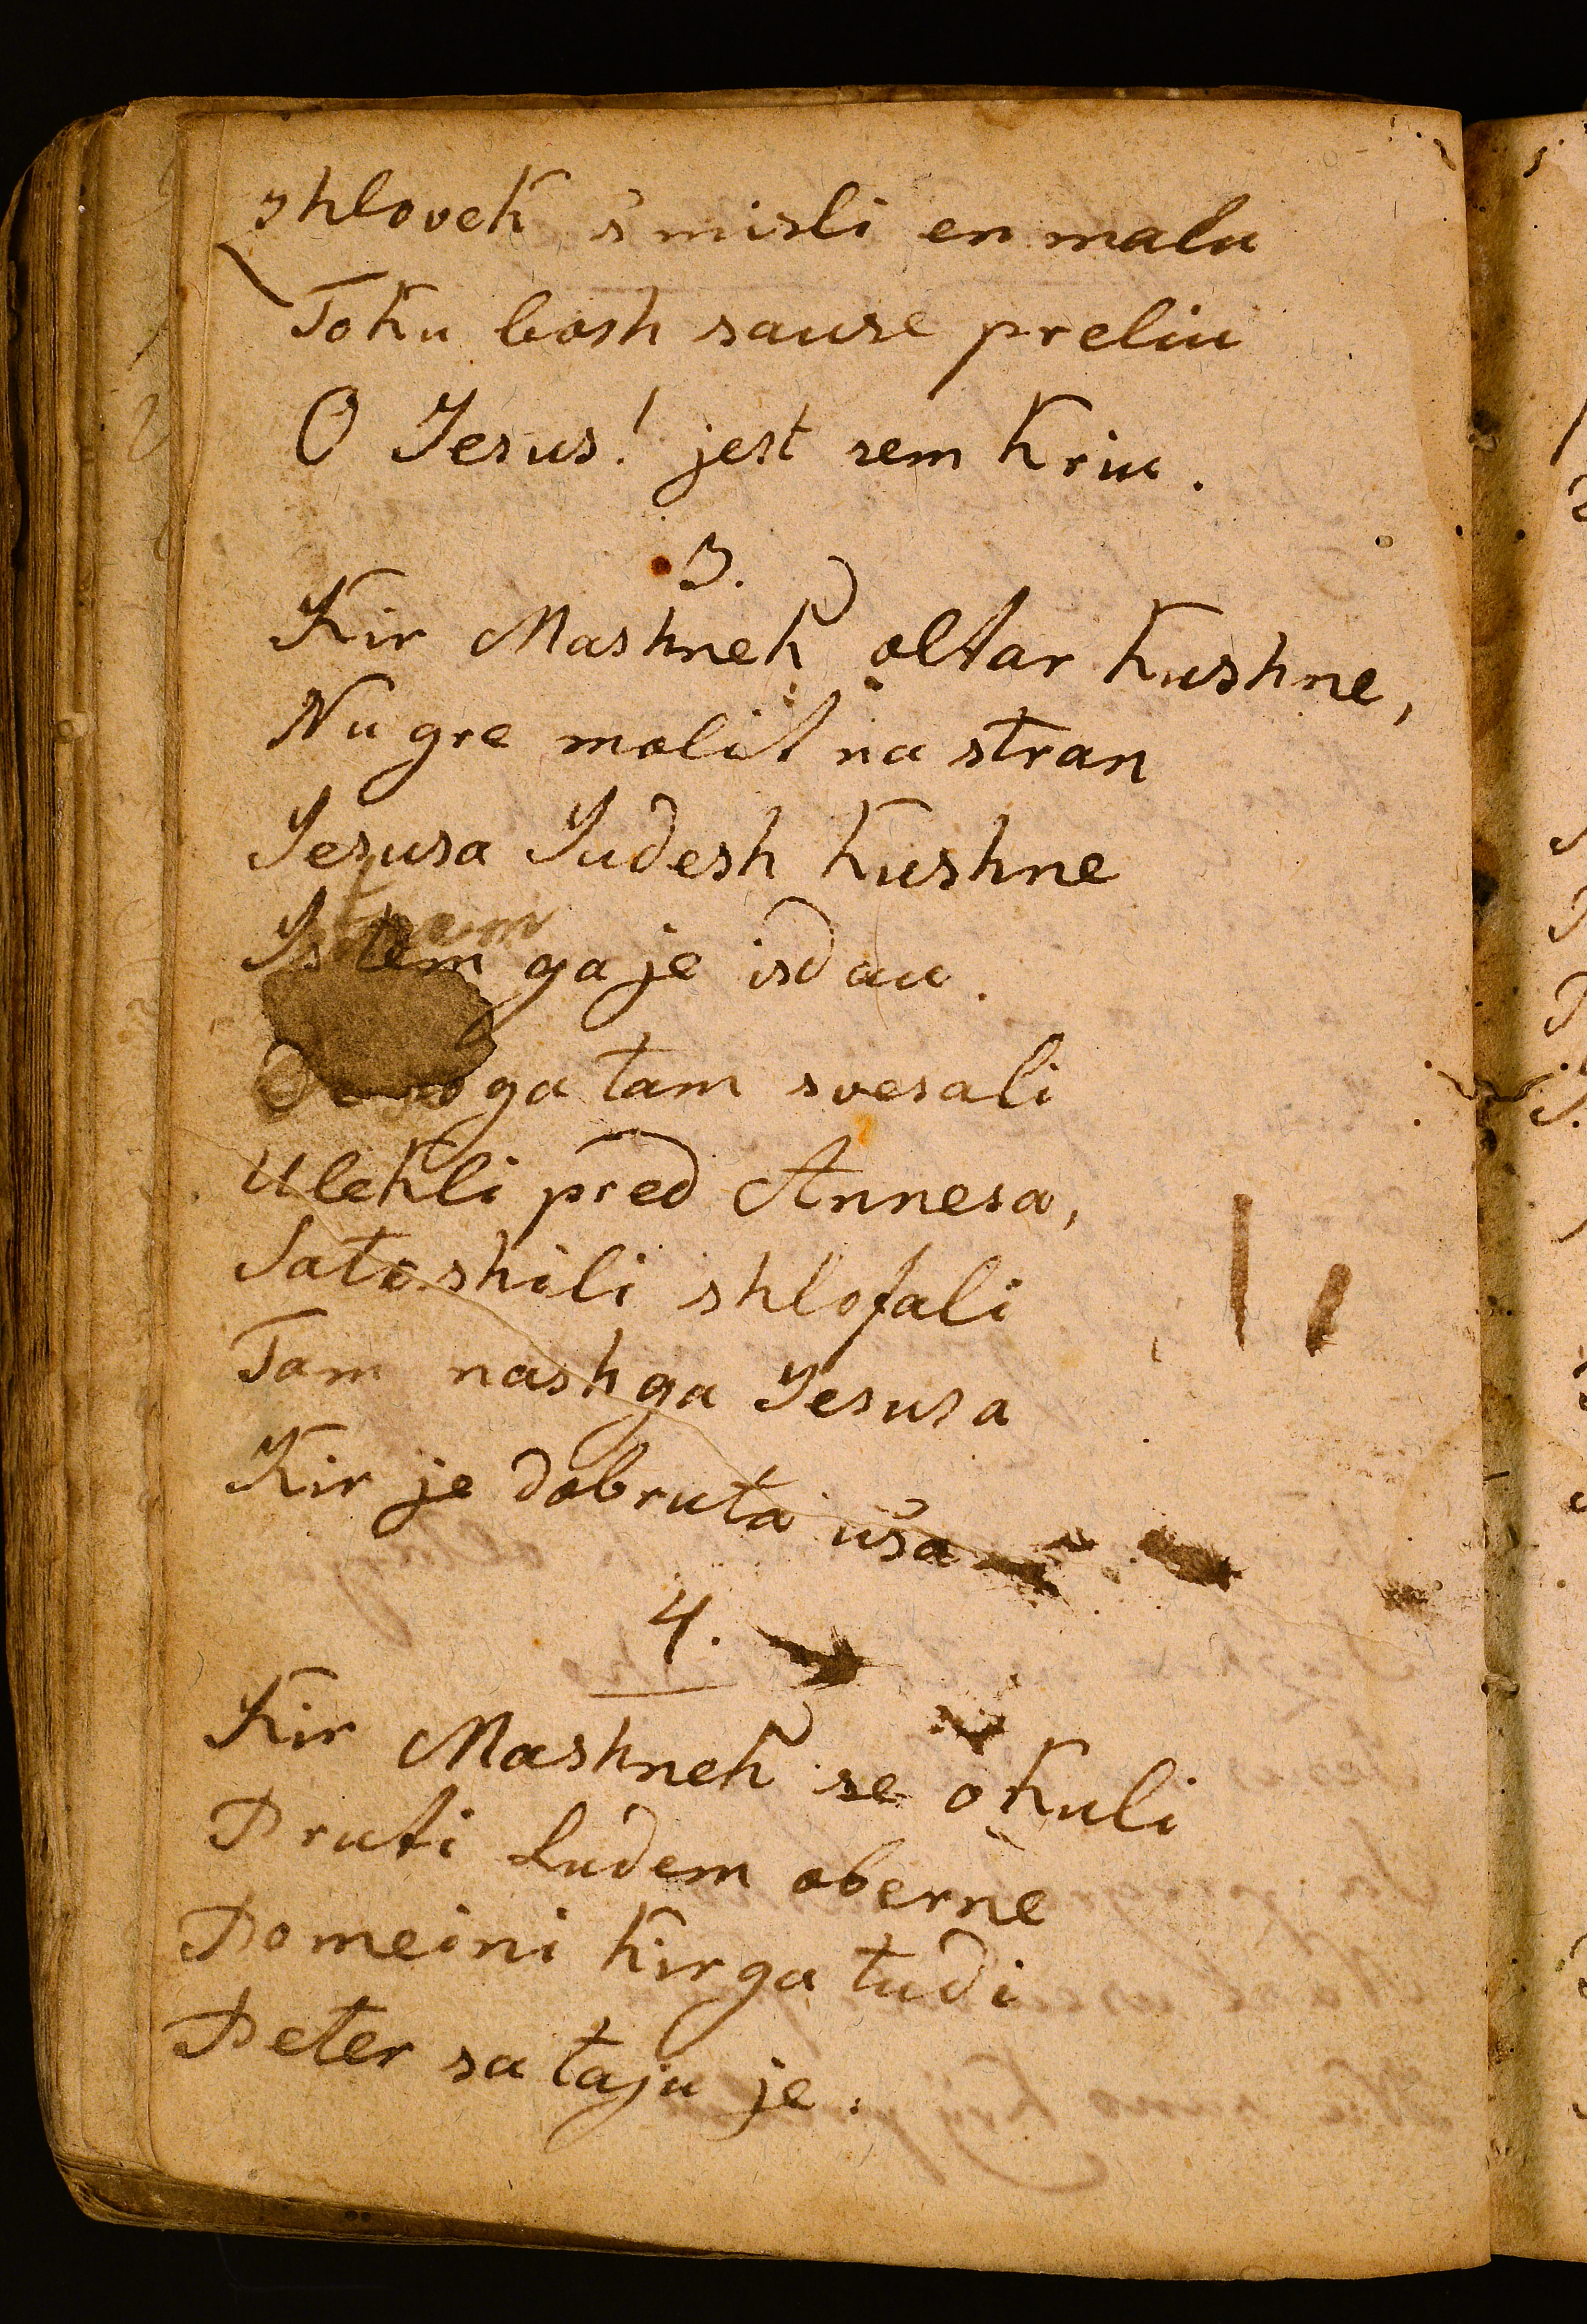 shlovek s'misli en malu
Toku bosh sause preliu
O Jesus! jest sem kriu.
3.
Kir Mashnek oltar kushne,
Nu gre molit na stran
Jesusa Judesh kushne
Is tem ga je isdau.
ga tam svesali
Ulekli pred Annesa,
Sateshili shlofali
Tam nashga Jesusa
Kir je dobruta usa
4.
Kir Mashnek se okuli
Pruti Ludem oberne
Pomeini kir ga tudi
Peter sa taju je.